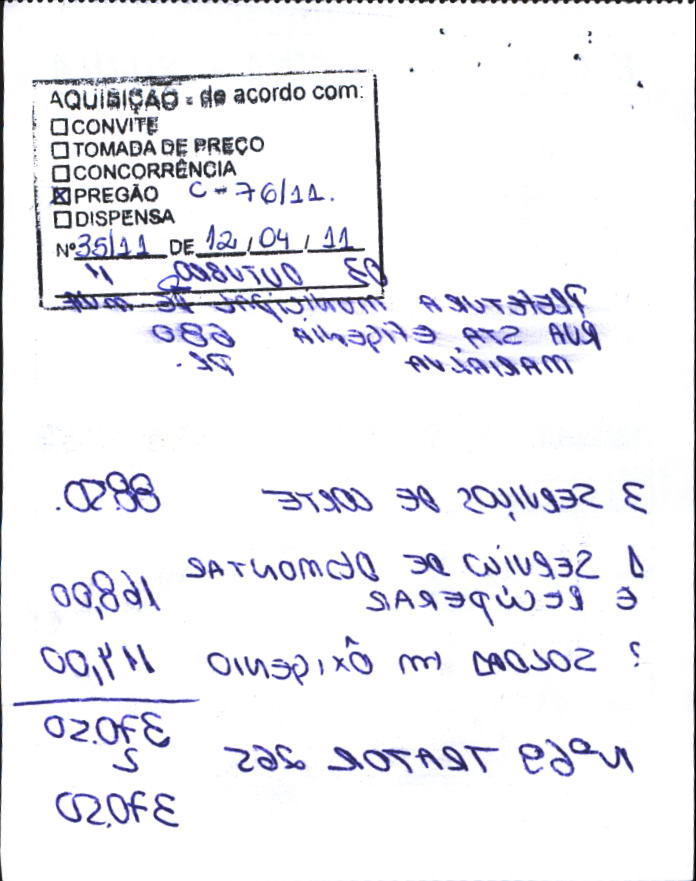 AQUISIÇÃO - de acordo com:
☐ CONVITE
☐ TOMADA DE PREÇO
☐ CONCORRÊNCIA
☒ PREGÃO C-76/11.
☐ DISPENSA
Nº 35/11 DE 12 / 04 / 11
03 OUTUBRO 11
PREFETURA MUNICIPAL DE
RUA STA EFIGENIA 680
MARIALVA PR.
3 SERVIÇOS DE CORTE 88.50.
1 SERVIÇO DE DESMONTAR
E RECUPERAR 168,00
? SOLDAS EM ÔXIGENIO 114,00
370.50
Nº 69 TRATOR 265
370.50